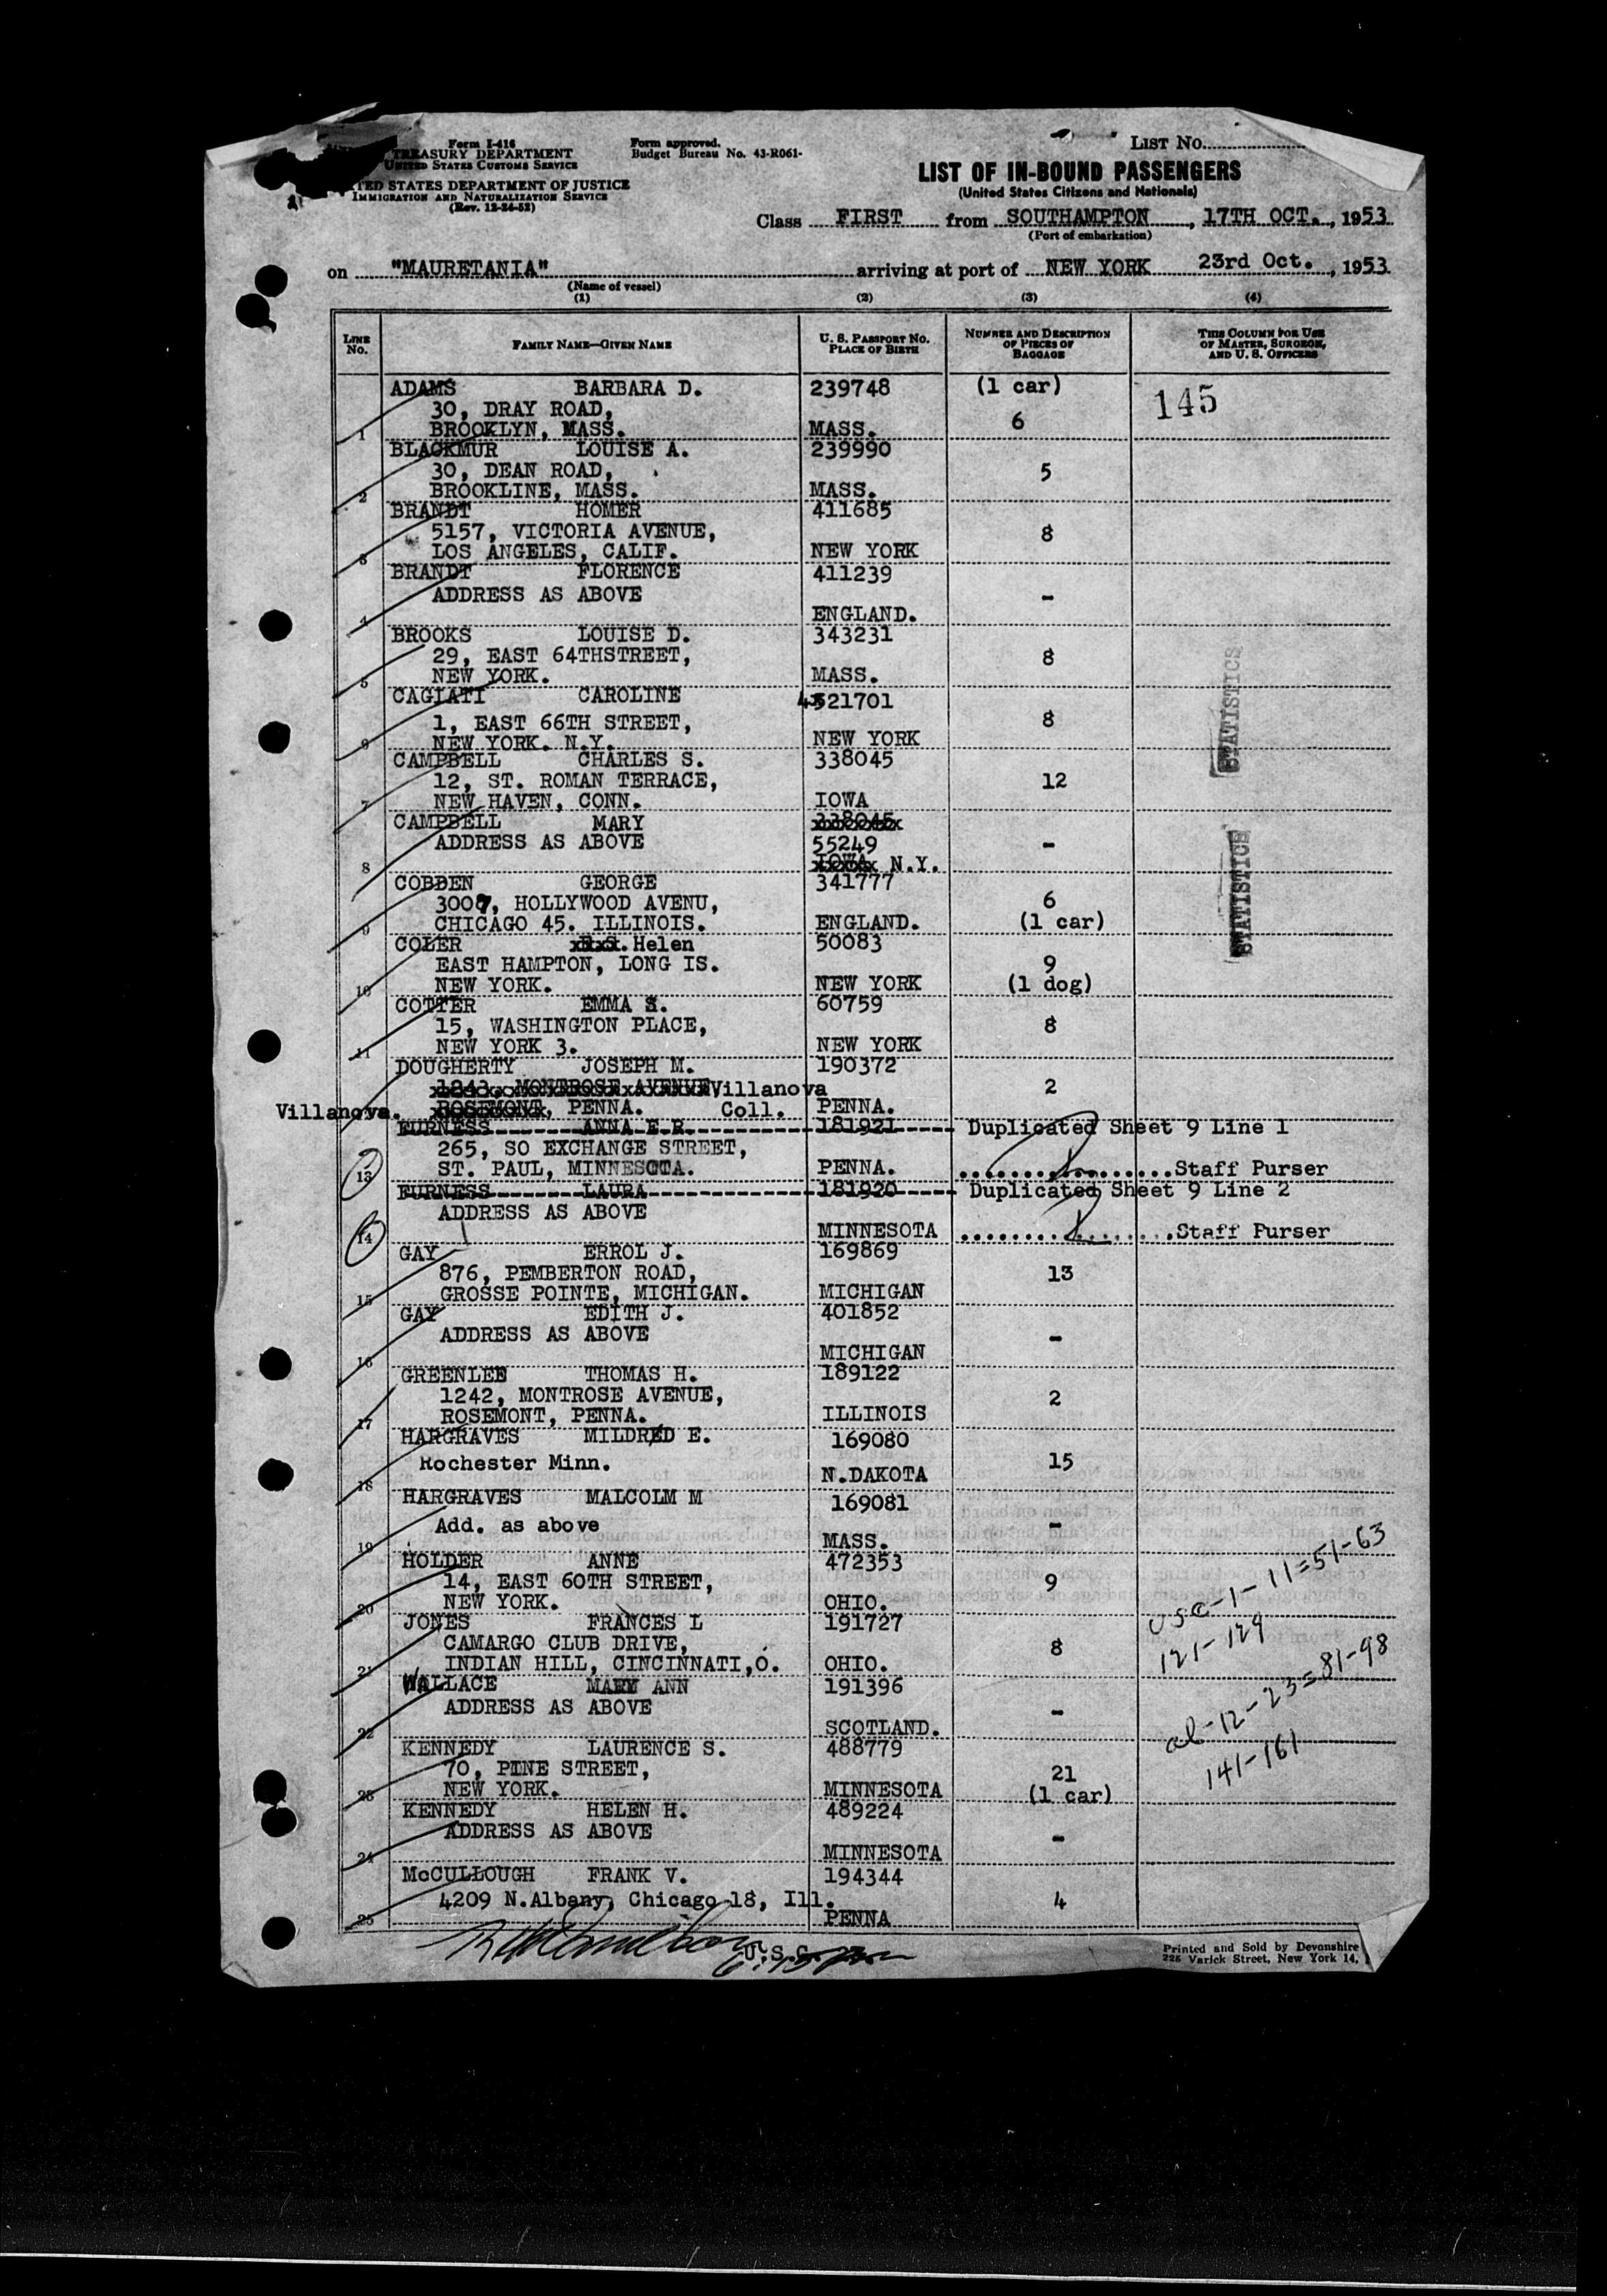 Form I-416
TREASURY DEPARTMENT
UNITED STATES CUSTOMS SERVICE
STATES DEPARTMENT OF JUSTICE
IMMIGRATION AND NATURALIZATION SERVICE
(Rev. 12-24-52)
Form approved.
Budget Bureau No. 43-R061-
LIST No.
LIST OF IN-BOUND PASSENGERS
(United States Citizens and Nationals)
Class FIRST from SOUTHAMPTON, 17TH OCT., 1953
(Port of embarkation)
on "MAURETANIA" arriving at port of NEW YORK 23rd Oct., 1953
(Name of vessel)
(1) (2) (3) (4)
LINE No. FAMILY NAME—GIVEN NAME U. S. PASSPORT No. PLACE OF BIRTH NUMBER AND DESCRIPTION OF PIECES OF BAGGAGE THIS COLUMN FOR USE OF MASTER, SURGEON, AND U. S. OFFICERS
ADAMS BARBARA D. 239748 (1 car) 145
30, DRAY ROAD, 6
1 BROOKLYN, MASS. MASS.
BLACKMUR LOUISE A. 239990
30, DEAN ROAD, 5
2 BROOKLINE, MASS. MASS.
BRANDT HOMER 411685
5157, VICTORIA AVENUE, 8
3 LOS ANGELES, CALIF. NEW YORK
BRANDT FLORENCE 411239
ADDRESS AS ABOVE -
4 ENGLAND.
BROOKS LOUISE D. 343231
29, EAST 64THSTREET, 8
5 NEW YORK. MASS.
CAGIATI CAROLINE 21701
1, EAST 66TH STREET, 8
6 NEW YORK. N.Y. NEW YORK
CAMPBELL CHARLES S. 338045
12, ST. ROMAN TERRACE, 12
7 NEW HAVEN, CONN. IOWA
CAMPBELL MARY 338045
ADDRESS AS ABOVE 55249 -
8 IOWA N.Y.
COBDEN GEORGE 341777
3007, HOLLYWOOD AVENU, 6
9 CHICAGO 45. ILLINOIS. ENGLAND. (1 car)
COLER Helen 50083
EAST HAMPTON, LONG IS. 9
10 NEW YORK. NEW YORK (1 dog)
COTTER EMMA S. 60759
15, WASHINGTON PLACE, 8
11 NEW YORK 3. NEW YORK
DOUGHERTY JOSEPH M. 190372
1243, MONTROSE AVENUE, Villanova 2
Villanova. ROSEMONT, PENNA. Coll. PENNA.
FURNESS ANNA E R. 181921 Duplicated Sheet 9 Line 1
265, SO EXCHANGE STREET,
13 ST. PAUL, MINNESOTA. PENNA. Staff Purser
FURNESS LAURA 181920 Duplicated Sheet 9 Line 2
ADDRESS AS ABOVE
14 MINNESOTA Staff Purser
GAY ERROL J. 169869
876, PEMBERTON ROAD, 13
15 GROSSE POINTE, MICHIGAN. MICHIGAN
GAY EDITH J. 401852
ADDRESS AS ABOVE -
16 MICHIGAN
GREENLEE THOMAS H. 189122
1242, MONTROSE AVENUE, 2
17 ROSEMONT, PENNA. ILLINOIS
HARGRAVES MILDRED E. 169080
Rochester Minn. 15
18 N.DAKOTA
HARGRAVES MALCOLM M 169081
Add. as above -
19 MASS.
HOLDER ANNE 472353
14, EAST 60TH STREET, 9
20 NEW YORK. OHIO.
JONES FRANCES L 191727
CAMARGO CLUB DRIVE, 8
21 INDIAN HILL, CINCINNATI,O. OHIO.
WALLACE MARY ANN 191396
ADDRESS AS ABOVE -
22 SCOTLAND.
KENNEDY LAURENCE S. 488779
70, PINE STREET, 21
23 NEW YORK. MINNESOTA (1 car)
KENNEDY HELEN H. 489224
ADDRESS AS ABOVE -
24 MINNESOTA
McCULLOUGH FRANK V. 194344
4209 N.Albany, Chicago 18, Ill. 4
25 PENNA
STATISTICS
STATISTICS
usc-1-11=51-63
121-129
al-12-23=81-98
141-161
U.S.C.
Printed and Sold by Devonshire
225 Varick Street, New York 14,